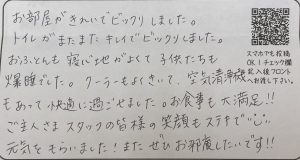 お部屋がきれいでビックリしました。
トイレがまたまたキレイでビックリしました。
おふとんも寝心地がよくて子供たちも
爆睡でした。クーラーもよくきいて、空気清浄機
もあって快適に過ごせました。お食事も大満足!!
ご主人さまスタッフの皆様の笑顔もステキで
元気をもらいました!またぜひお邪魔したいです!!
スマホでも投稿
OK!チェック欄
記入後フロント
へお渡し下さい。